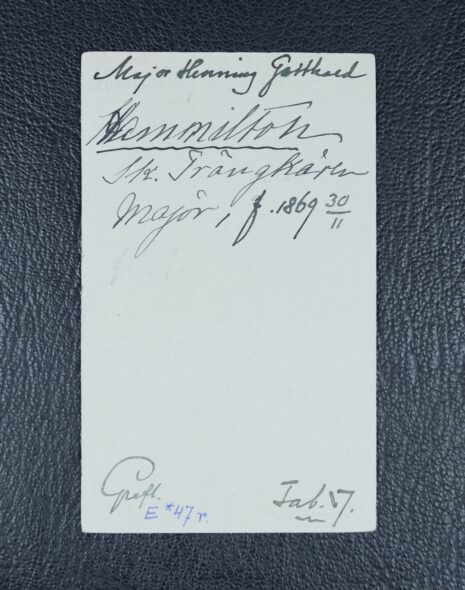 Major Henning Gotthard
Hammilton
Sk. Trängkåren
Major, f. 1869 30/11
Grefl.
E *47 r.
Tab. 17.